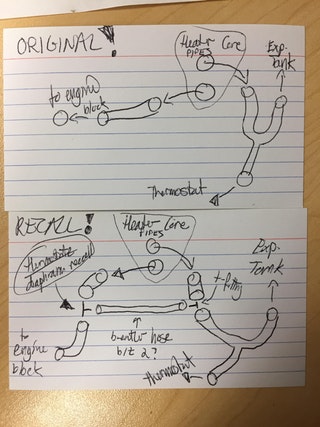 ORIGINAL!
Heater Core
PIPES
Exp.
tank
to engine
block
Thermostat
RECALL!
Heater Core
PIPES
diaphragm recall
t-fitting
Exp.
Tank
to
engine
block
another hose
b/t 2?
thermostat